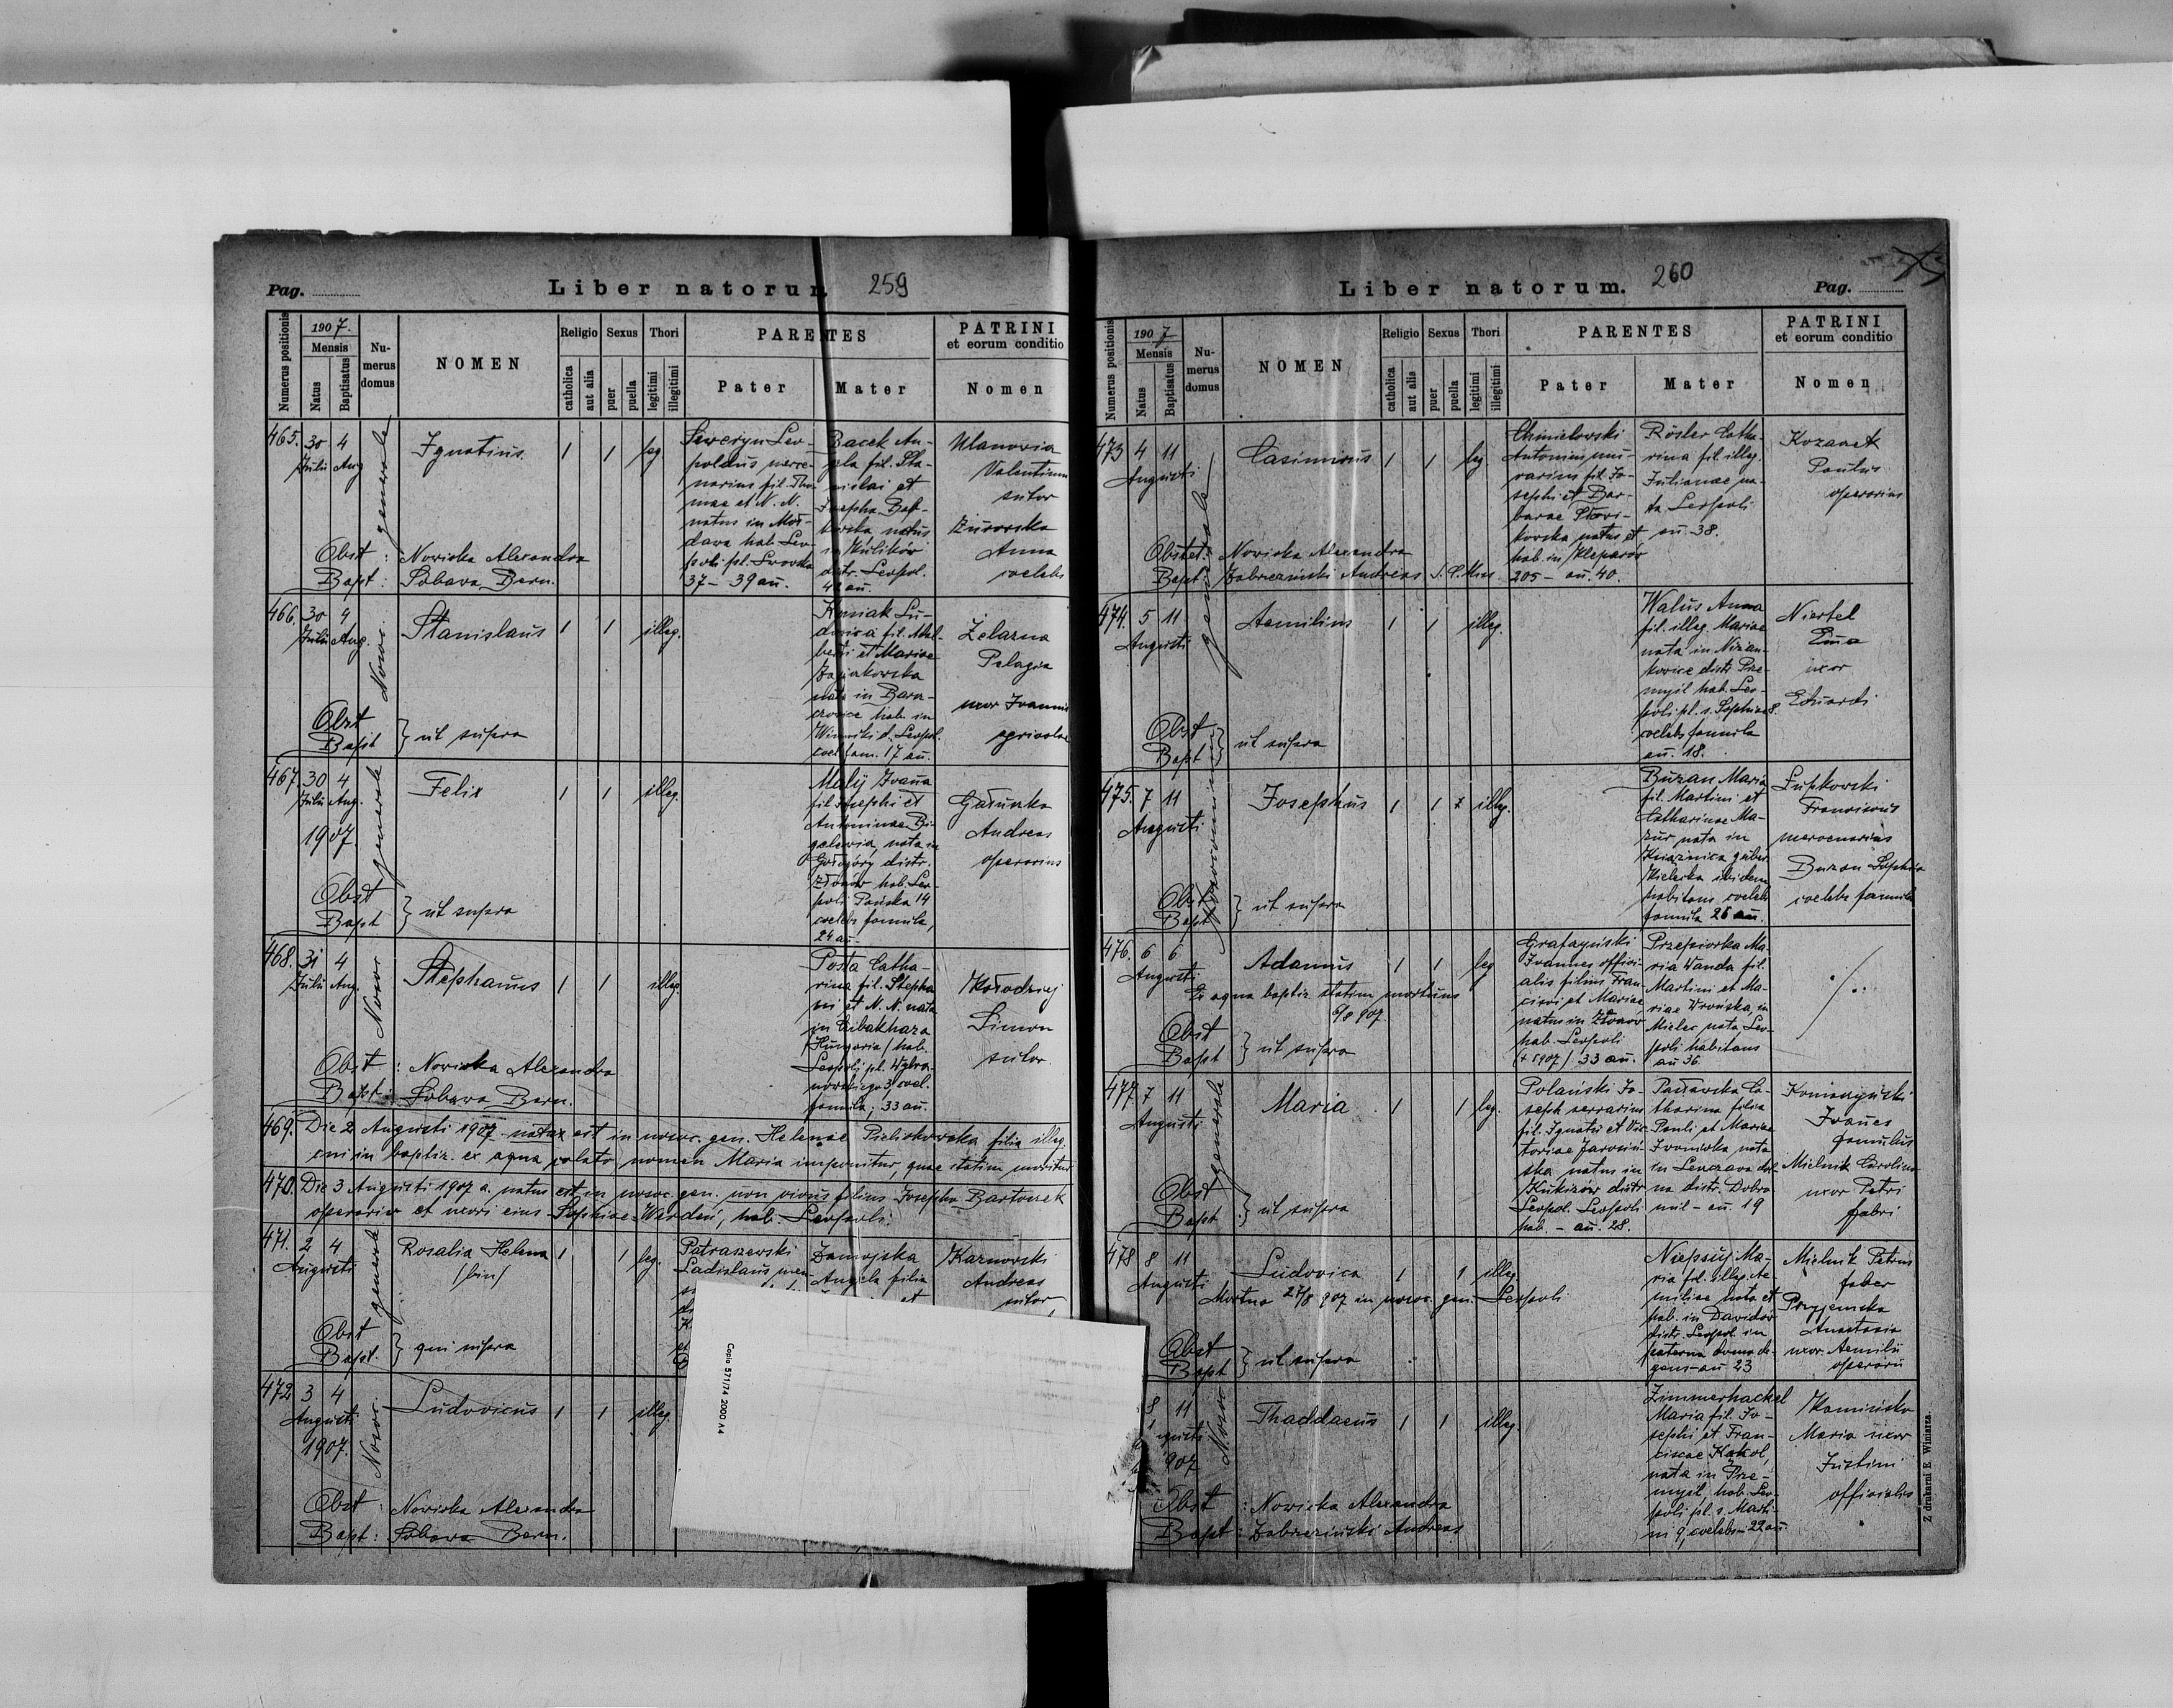 Pag.
Liber natorum
259
Numerus positionis
1907.
Mensis
Natus
Baptisatus
Nu-
merus
domus
NOMEN
Religio
catholica
aut alia
Sexus
puer
puella
Thori
legitimi
illegitimi
PARENTES
Pater
Mater
PATRINI
et eorum conditio
Nomen
465. 30 4
Julii Aug
generale
Ignatius 1 1 leg.
Seweryn Leo-
poldus merce-
narius fil. Tho-
mae et N. N.
natus in Mol-
dawa hab. Leo-
poli pl.
37 - 39 an.
Bacek An-
gela fil. Sta-
nislai et
Josepha
in Kulików
distr. Leopol.
Valentinus
sutor
Żurowska
Anna
coelebs
Obst : Nowicka Alexandra
Bapt : Sobawa Bern.
466. 30 4
Julii Aug.
Stanislaus 1 1 illeg.
dovica fil. Adal-
berti et Mariae
nata in Barsz-
czowice hab. in
Winniki d. Leopol.
17 an.
Żelazna
Pelagia
uxor Joannis
agricolae
Obst
Bapt } ut supra
467. 30 4
Julii Aug.
1907
generale
Felix 1 1 illeg.
Mały Joanna
fil. Josephi et
Antoninae Bi-
galewicz, nata in
Gołogóry distr.
Złoczów hab. Leo-
poli Pańska 14
coelebs famula,
24 an.
Andreas
operarius
Obst
Bapt } ut supra
468. 31 4
Julii Aug.
Stephanus 1 1 illeg.
Posta Catha-
rina fil. Stepha-
ni et N. N. nata
in Cibakhaza
Hungaria / hab.
Leopoli pl. Wybra-
nowskiego 3, coel.
famula, 33 an.
Kołodziej
Simon
sutor
Obst : Nowicka Alexandra
Bapt : Sobawa Bern.
469. Die 2 Augusti 1907 nata est in nosoc. gen. Helenae Pieliskowska filia illeg.
cui in baptiz. ex aqua colato nomen Maria imponitur, quae statim moritur
470. Die 3 Augusti 1907 a. natus est in nosoc. gen. non vivus filius Josepho Bartoszek
operario et uxori eius Sophiae Werdeń, hab. Leopoli.
471. 2 4
Augusti
generale
Rosalia Helena 1 1 leg.
/bin/
Patraszewski
Ladislaus
Zamojska
Angela filia
et
Karnowski
Andreas
sutor
Obst
Bapt. } qui supra
472 3 4
Augusti
1907.
Ludovicus 1 1 illeg.
Obst : Nowicka Alexandra
Bapt : Sobawa Bern.
Copia 571/74 2000 A4
Liber natorum.
260
Pag.
Numerus positionis
1907
Mensis
Natus
Baptisatus
Nu-
merus
domus
NOMEN
Religio
catholica
aut alia
Sexus
puer
puella
Thori
legitimi
illegitimi
PARENTES
Pater
Mater
PATRINI
et eorum conditio
Nomen
473 4 11
Augusti
generale
Casimirus 1 1 leg.
Chmielowski
Antonius mu-
rarius fil. Jo-
sephi et Bar-
barae
natus et
hab. in Kleparów
205 - an. 40.
Rösler Catha-
rina fil. illeg.
Julianae na-
ta Leopoli
an. 38.
Kozanek
Paulus
operarius
Obstet. Nowicka Alexandra
Bapt: Zabrzeziński Andreas
474. 5 11
Augusti
Aemilius 1 1 illeg.
Walus Anna
fil. illeg. Mariae
nata in Niżan-
kowice distr. Prze-
myśl hab. Leo-
poli pl. s. Sophiae 8.
coelebs famula
an. 18.
Niertel
Emma
uxor
Eduardi
Obst
Bapt } ut supra
475. 7 11
Augusti
Josephus 1 1 illeg.
Buzan Maria
fil. Martini et
Catharinae Ma-
zur nata in
Kniaźnica guber.
Kielecka ibidem
habitans coelebs
famula 26 an.
Łupkowski
Franciscus
mercenarius
Buzan Sophia
coelebs famula
Obst
Bapt } ut supra
476. 6 6
Augusti
Adamus 1 1 leg
Ex aqua baptiz. statim mortuus
6/8 907
Grafazyński
Joannes offici-
alis filius Fran-
cisci et Mariae
natus in Złoczów
hab. Leopoli
33 an.
Przepiorka Ma-
ria Wanda fil.
Martini et Ma-
riae Wrońska, in
Mielec nata, Leo-
poli habitans
an 36.
Obst
Bapt } ut supra
477. 7 11
Augusti
generale
Maria 1 1 leg.
Polański Jo-
seph serrarius
fil. Ignatii et Vic-
toriae
natus in
Kukizów distr
Leopol. Leopoli
hab. - an. 28.
tharina filia
Pauli et Mariae
Iwonicka nata
na distr. Dobro-
mil - an. 19
Joannes
famulus
Mielnik Carolina
uxor Petri
fabri
Obst
Bapt } ut supra
478 8 11
Augusti
Ludovica 1 1 illeg.
Mortua 27/8 907 in nosoc. gen. Leopoli
ria fil. illeg. Ae-
miliae nata et
hab. in Davidów
distr. Leopol. in
paterna domo de-
gens - an 23
Mielnik Petrus
faber
Przyjemska
Anastasia
uxor. Aemilii
operarii
Obst
Bapt } ut supra
8 11
907
Thaddaeus 1 1 illeg.
Zimmerhackel
Maria fil. Jo-
sephi et Fran-
ciscae Kakol,
nata in Prze-
myśl, hab. Leo-
poli pl. s. Marti-
ni 9, coelebs - 22 an.
Kamińska
Maria uxor
Justini
officialis
Obst : Nowicka Alexandra
Bapt : Zabrzeziński Andreas
Z drukarni E. Winiarza.